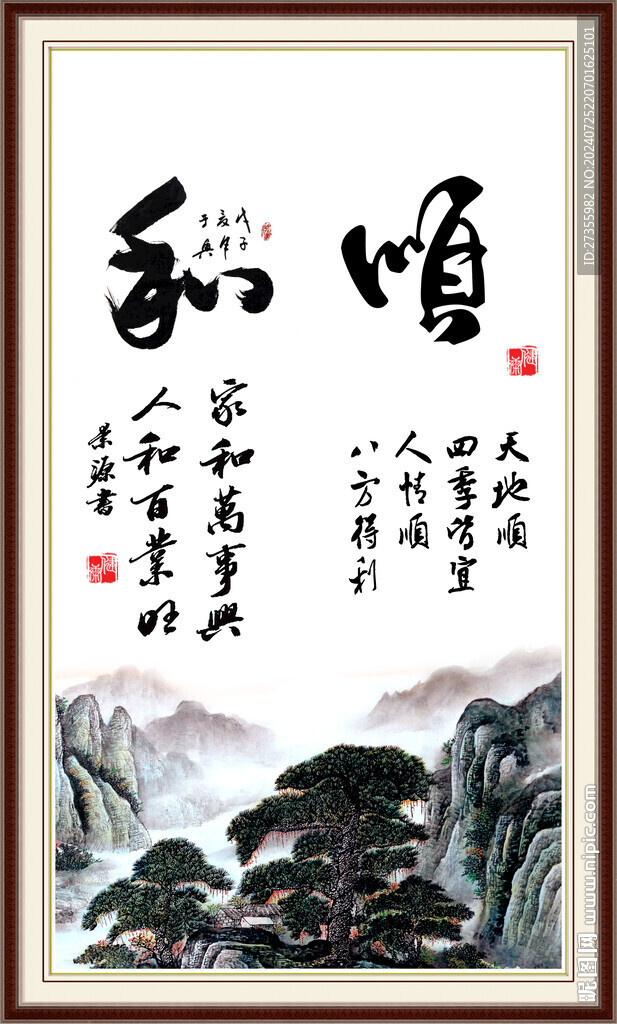 順
天地順
四季皆宜
人情順
八方得利
和
戊子
夏年
于奥
家和萬事興
人和百業旺
景源書
ID:27355982 NO:20240725220701625101
昵图网 www.nipic.com